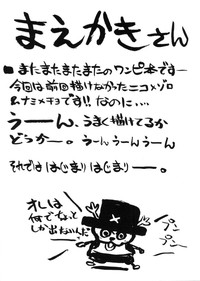 まえがきさん
■またまたまたまたのワンピ本です—
今回は前回描けなかったニコ×ゾロ
&ナミ×チョです!!なのに…
うーん、うまく描けてるか
どうかー。うーんうーんうーん
それでははじまりはじまりー。
オレは
何でちょっと
しか出ないんだ
プン
プン